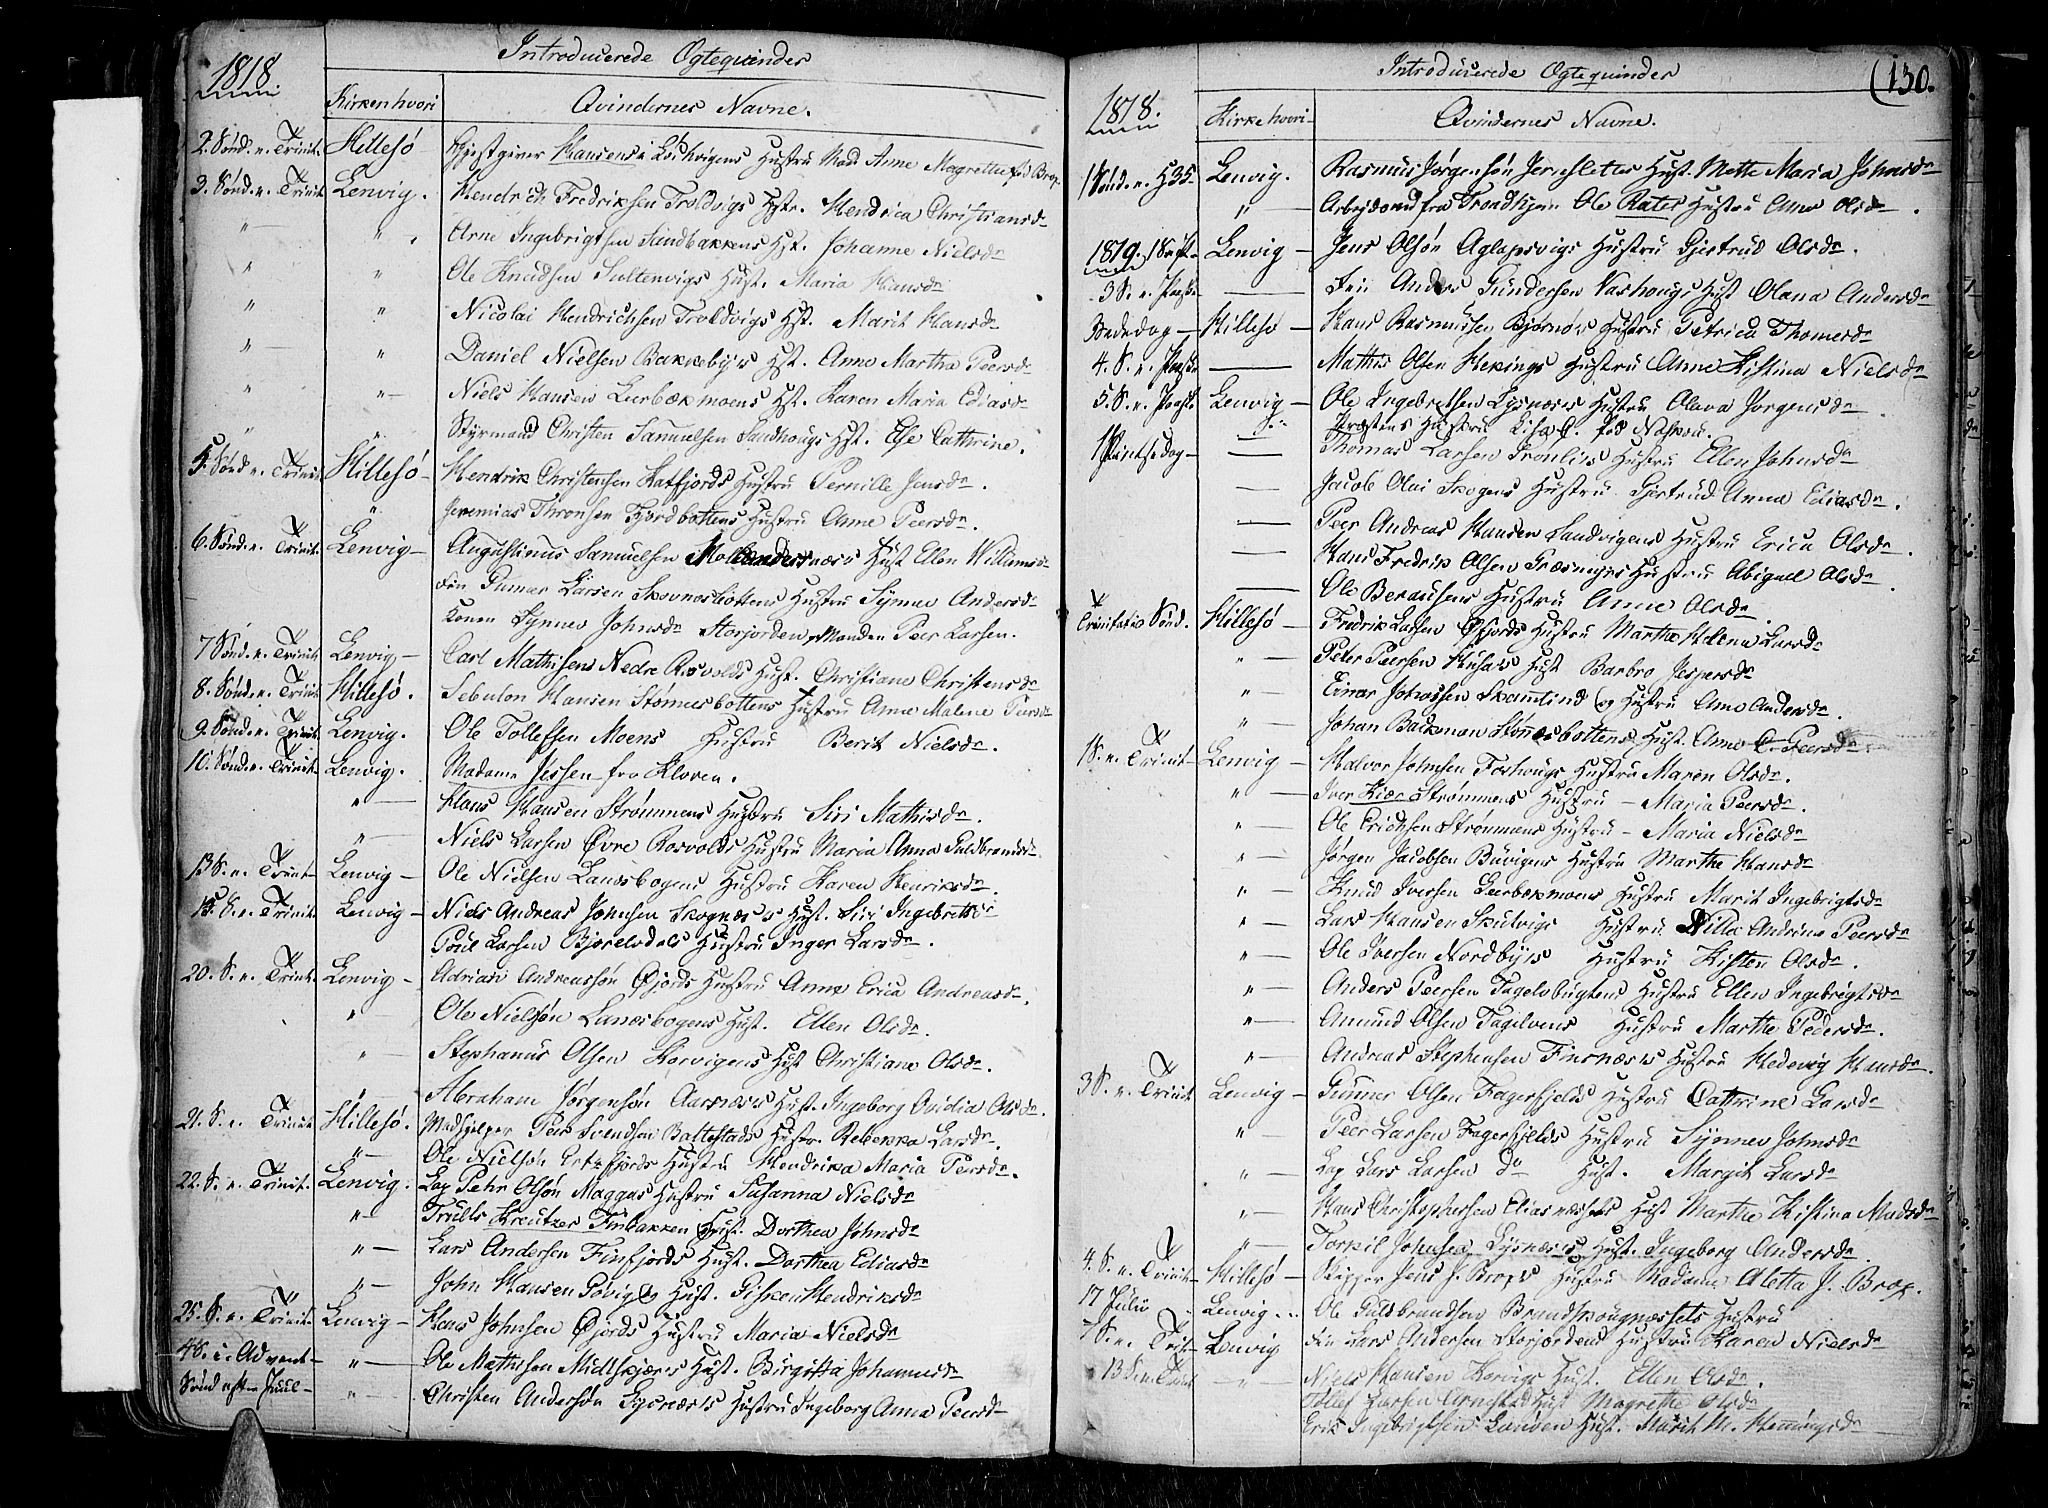 1818
Introducerede Ogtequinder
Kirken hvori
Qvindernes Navne.
2. Sönd. e. Trinit. Hillesö Gjestgiver Hansens i Hustru Mad Anne Magrethe
3. Sönd. e. Trinit. Lenvig. Hendrich Fredriksen Troldvigs Hstr. Hendrica Christiansdr
" " Arne Ingebrigtsen Sandbakkens Hst. Johanne Nielsdr
" " Ole Knudsen Sultenvigs Hust. Maria Hansdr
" " Nicolai Hendrichsen Troldvigs Hst. Marit Hansdr
" " Daniel Nielsen Bakkebyes Hst. Anne Martha Peersdr
" " Niels Hansen Leerbækmoens Hst. Karen Maria Ediasdr
" " Styrmand Christen Samuelsen Sandhougs Hst. Else Cathrine.
5. Sönd. e. Trinit Hillesö - Hendrik Christensen Katfjords Hustru Pernille Jensdr.
" Jeremias Thronsen Fjordbottens Hustru Anne Peersdr.
6. Sönd. e. Trinit. Lenvig - Augustinus Samuelsen Hust Ellen Willumsdr
Fin Gunner Larsen Skovnesbottens Hustru Synnev Andersdr
Konen Synnev Johnsdr Storjorden, Manden Peer Larsen.
7 Sönd. e. Trinit Lenvig - Carl Mathisens Nedre Rosvolds Hust. Christiane Christensdr
8. Sönd. e. Trinit Hillesö. Sebulon Hansen Stönnesbottens Hustru Anne Malene Peersdr
9. Sönd. e. Trinit. Lenvig. Ole Tollefsen Moens Hustru Berit Nielsdr.
10. Sönd. e. Trinit - Lenvig. Madame Jessen fra Kloven.
" Hans Hansen Strömmens Hustru Siri Mathisdr.
" Niels Larsen Övre Rosvolds Hustru Maria Anna Guldbrandsdr.
13 S. e. Trinit - Lenvig - Ole Nielsen Landsbogens Hustru Karen Henriksdr.
S. e. Trinit. Lenvig - Niels Andreas Johnsen Skognæss Hust. Siri Ingebritsdr
Poul Larsen Bjorelvdals Hustru Inger Larsdr.
20. S. e. Trinit. Lenvig - Adrian Andreassön Öjords Hustru Anne Erica Andreasdr.
" Ole Nielsön Landsbogens Hust. Ellen Olsdr.
" Stephanus Olsen Kervigens Hst Christiane Olsdr.
" Abraham Jörgensön Aarsnæss Hust. Ingeborg Ovidia Olsdr.
21. S. e. Trinit Hillesö. Medhjelper Peer Svendsen Baltestads Hustr. Rebekka Larsdr.
" Ole Nielsön Ertnfjords Hustru Hendrika Maria Peersdr.
22. S. e. Trinit. Lenvig. Lap Pehr Olsön Maggas Hustru Susanna Nielsdr
" Trulls Kreutzer Finbakken Hust. Dorthea Johnsdr
" Lars Andersen Finfjords Hust. Dorthea Ediasdr
" John Hansen Hust. Gisken Hendriksdr
25. S. e. Trinit. Lenvig - Hans Johnsen Öjords Hustru Maria Nielsdr
4 S. i Advent - " Ole Mathisen Midtskjærs Hust. Birgitta Johannisdr
Sönd efter Juul - " Christen Andersön Lysnæss Hustru Ingeborg Anna Peersdr
1818.
Introducerede Ogtequinder
(130.
Kirke hvori -
Qvindernes Navne.
1 Sönd. e. H3K Lenvig. Rasmus Jörgensön Hust. Mette Maria Johnsdr
" Arbejdsmd fra Trondhjem Ole Rates Hustru Anne Olsdr.
1819. Lenvig - Jens Olsön Aglapsvigs Hustru Gjertrud Olsdr.
3 S. e. Paaske - Fin Anders Gundersen Vashougs Hust Olana Andersdr
Bededag - Hillesö - Hans Rasmussen Björnöes Hustru Petrica Thomesdr
4. S. e. Paaske - Mathis Olsen Hekings Hustru Anne Kistina Nielsdr
5. S. e. Paaske Lenvig - Ole Ingebretsen Lysnæss Hustru Olava Jorgensdr.
do Præstens Hustru
1 Pintsedag - Thomas Larsen Hustru Ellen Johnsdr
- Jacob Olai Skogens Hustru Gjertrud Anna Ediasdr.
- Peer Andreas Hansen Sandvigens Hustru Erica Olsdr.
- Hans Fredrik Olsen Græsmyrs Hustru Abigael Olsdr.
- Ole Berausens Hustru Anne Olsdr.
Trinitatis Sönd. Hillesö - Fredrik Larsen Öfjords Hustru Marthe Helena Larsdr
" Peter Peersen Husøes Hust Barbro Jespersdr
" Einar Johassen Skamtind og Hustru Ane Andersdr.
" Johan Backman Stönesbottens Hust. Anne C. Peersdr
1 S. e. Trinit - Lenvig - Halvor Johnsen Foshougs Hustru Maren Olsdr.
" Iver Kiær Strömmens Hustru - Maria Peersdr.
" Ole Erichsen Strömmens Hustru - Maria Nielsdr
" Jörgen Jacobsen Buvigens Hustru Marthe Hansdr
" Knud Iversen Leerbekmoens Hustru Marit Ingebrigtsdr
" Lars Hansen Skutvigs Hustru Silla Andrina Peersdr
" Ole Iversen Nordbyes Hustru Kisten Olsdr.
" Anders Peersen Tagelvbugtens Hustru Ellen Ingebrigtsdr
" Amund Olsen Tagelvens Hustru Marthe Pedersdr.
" Andreas Stephensen Finsnæss Hustru Hedevig Hansdr.
3 S. e. Trinit Lenvig - Gunner Olsen Fagerfjelds Hustru Cathrine Larsdr
" Peer Larsen Fagerfjelds Hustru Synnev Johnsdr
" Lap Lars Larsen do Hust. Margit Larsdr
" Hans Christophersen Eliasnessets Hust Marthe Kistina Madsdr
" Torkil Johnsen Lysnæss Hust. Ingeborg Andersdr.
4. S. e. Trinit - Hillesö - Skipper Jens J. Broxs Hustru Madame Aletta J. Brox.
17 Julii Lenvig.. Ole Guldbrandsen Brandskougnæssets Hustru
7 S. e. Trinit Lenvig Fin Lars Andersen Storjordens Hustru Karen Nielsdr
13 S. e. Trinit - " Niels Hansen Kervigs Hust. Ellen Olsdr.
Tollef Larsen Hust Magrethe Olsdr
Erik Ingebrigtsen Hust. Marit M. Hemingsdr